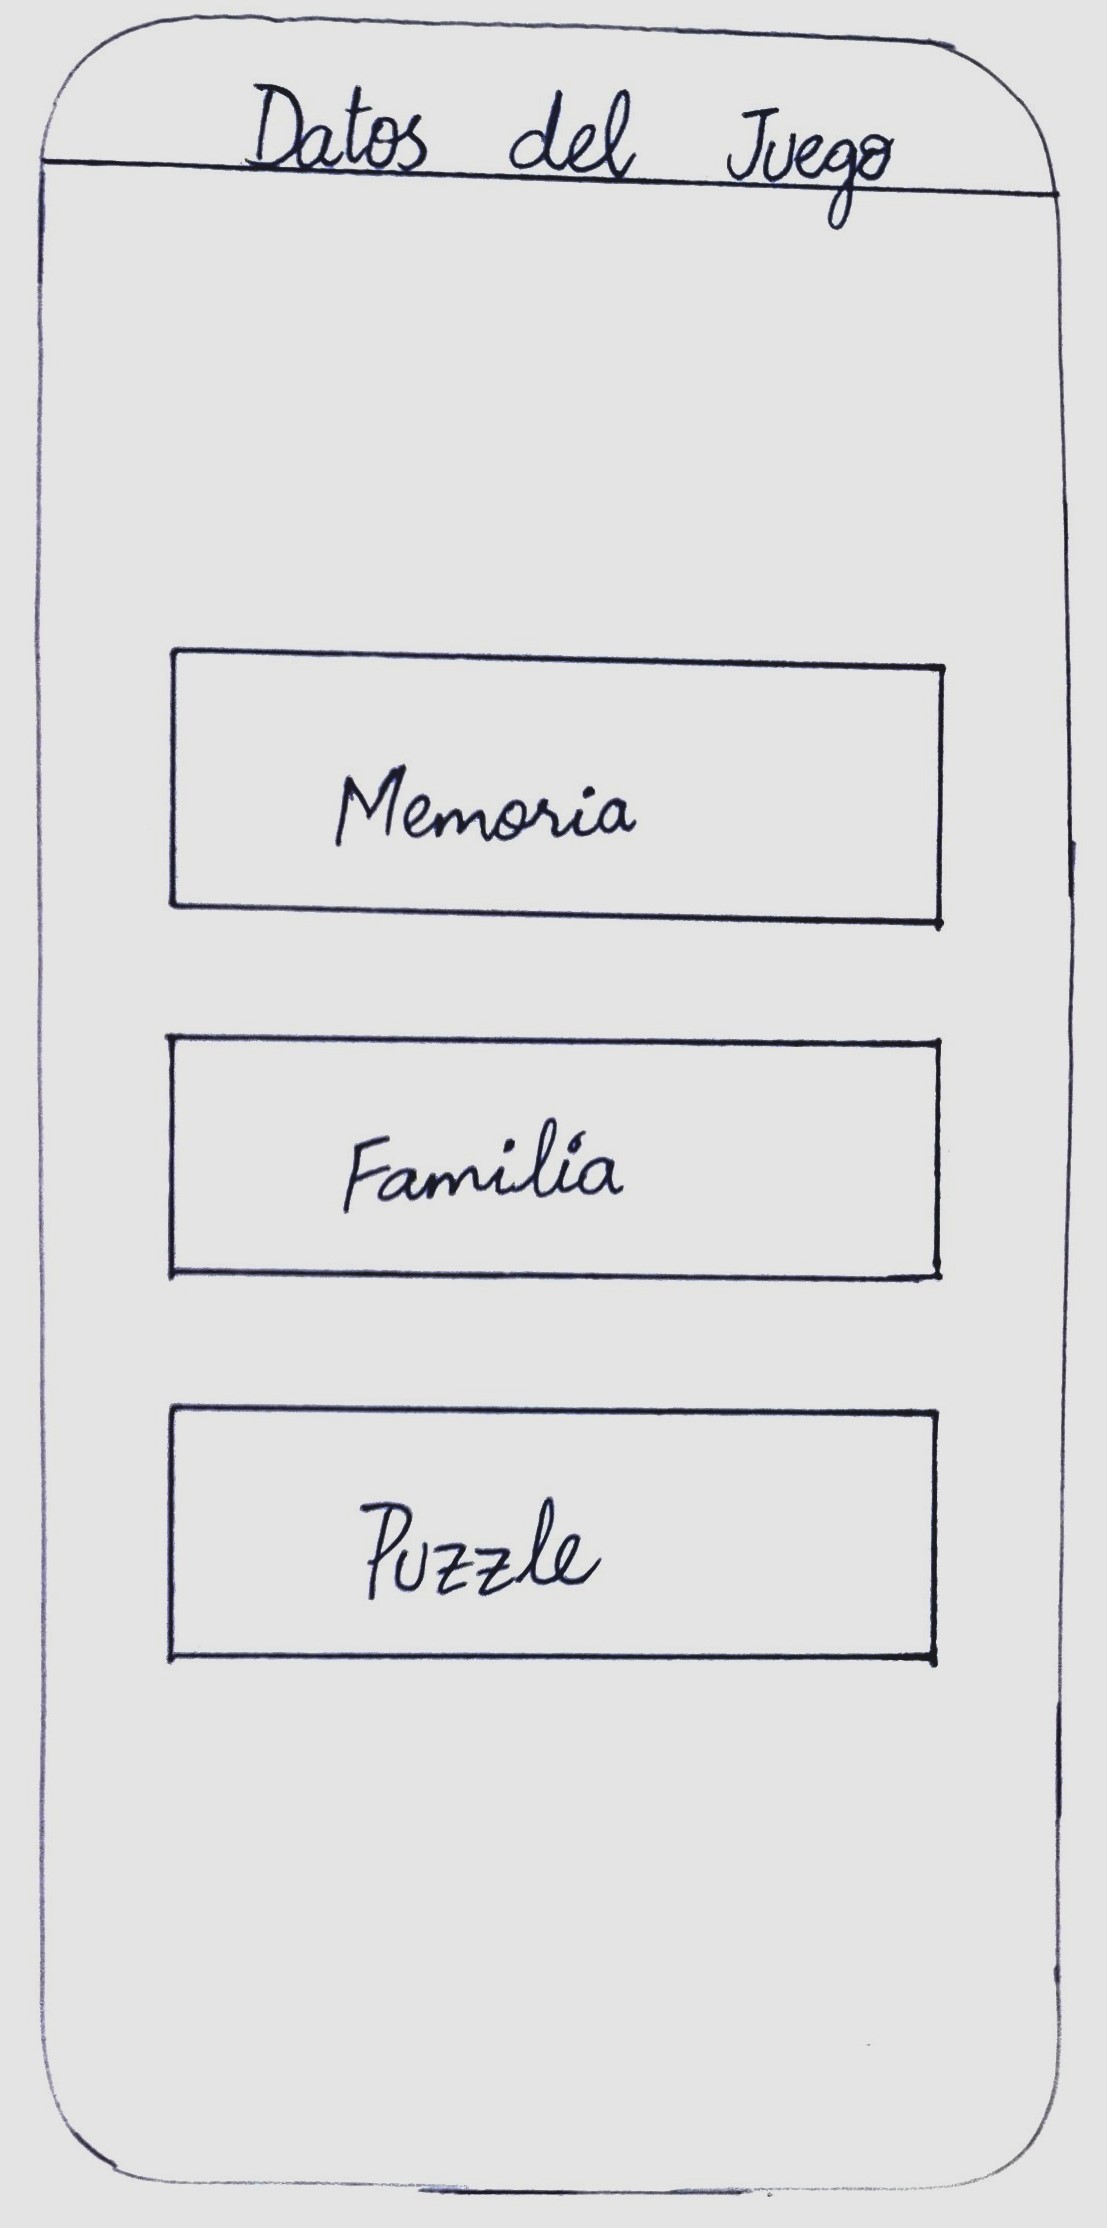 Datos del Juego
Memoria
Familia
Puzzle